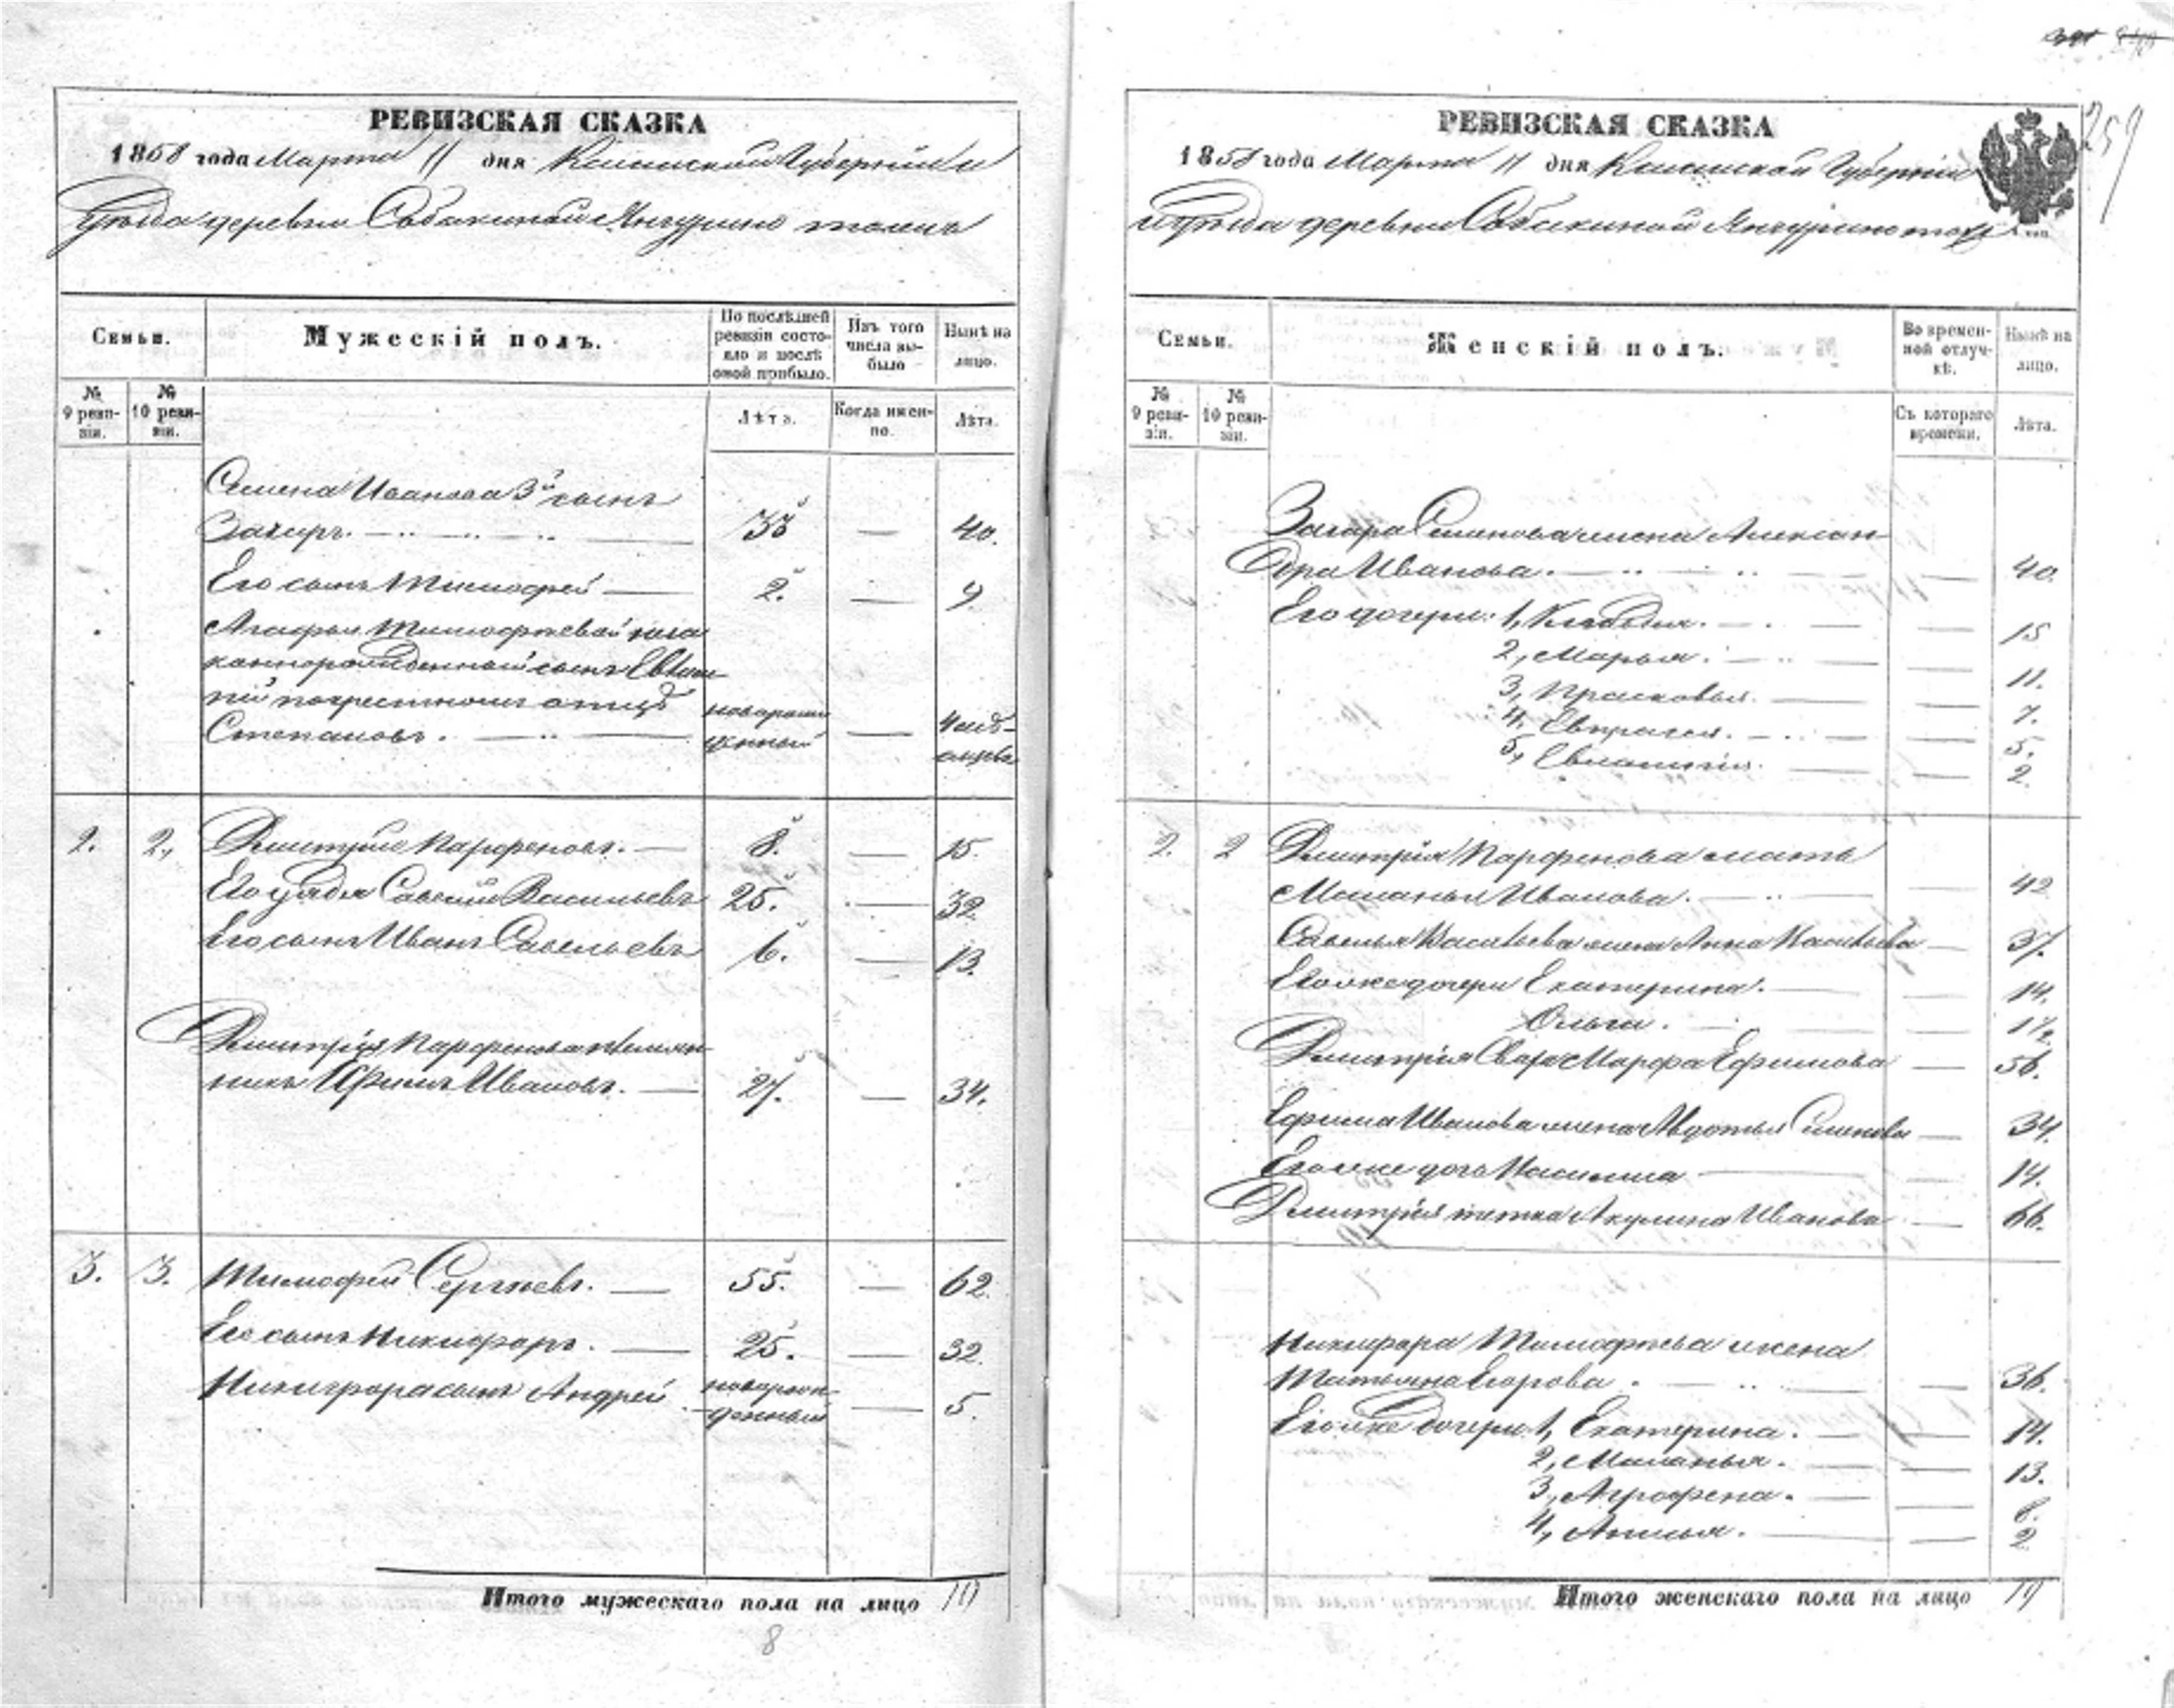 259
РЕВИЗСКАЯ СКАЗКА
1858 года Марта 11 дня Казанской Губернии и
Уѣзда деревни Собакиной Янчурино тожъ
Семьи.
Мужескій полъ.
По послѣдней ревизіи состояло и послѣ оной прибыло.
Изъ того числа выбыло
Нынѣ на лицо.
№ 9 ревизіи.
№ 10 ревизіи.
Лѣта.
Когда именно.
Лѣта.
Семена Иванова 3й сынъ
Захаръ. 33 — 40.
Его сынъ Тимофей — 2. — 9
Агафьи Тимофѣевой неза
коннорожденный сынъ
по крестному отцѣ
Степановъ. — новорожденный — 4 мѣсяцевъ
2. 2. Дмитрие Парфеновъ. — 8. — 15.
Его дядя Савелий Васильевъ 25. — 32.
Его сынъ Иванъ Савельевъ 6. — 13.
Дмитрія Парфенова племян
никъ Ефимъ Ивановъ. — 27. — 34.
3. 3. Тимофей Сергѣевъ. — 55. — 62.
Его сынъ Никифоръ. — 25. — 32.
Никифора сынъ Андрей новорожденный — 5.
Итого мужескаго пола на лицо 10
8
РЕВИЗСКАЯ СКАЗКА
1858 года Марта 11 дня Казанской Губерніи
и Уѣзда деревни Собакиной Янчурино тожъ
Семьи.
Женскій полъ.
Во временной отлучкѣ.
Нынѣ на лицо.
№ 9 ревизіи.
№ 10 ревизіи.
Съ котораго времени.
Лѣта.
Захара Семенова жена Алексан
дра Иванова. — 40.
Его дочери: 1, — 15
2, Марья. — 11.
3, Прасковья. — 7.
4, Евпраксия. — 5.
5, — 2.
2. 2 Дмитрія Парфенова мать
Маланья Иванова. — 42
Савелья Васильева жена Анна Васильева — 37.
Его же дочери Екатерина. — 14.
Ольга. — 1½
Дмитрія Марфа Ефимова — 56.
Ефима Иванова жена Авдотья Семенова — 34.
Его же дочь — 14.
Дмитрія тетка Акулина Иванова — 66.
Никифора Тимофѣева жена
Татьяна Егорова. — 36.
Его же дочери 1, Екатерина. — 14.
2, Маланья. — 13.
3, Аграфена. — 8.
4, Анисья. — 2
Итого женскаго пола на лицо 19